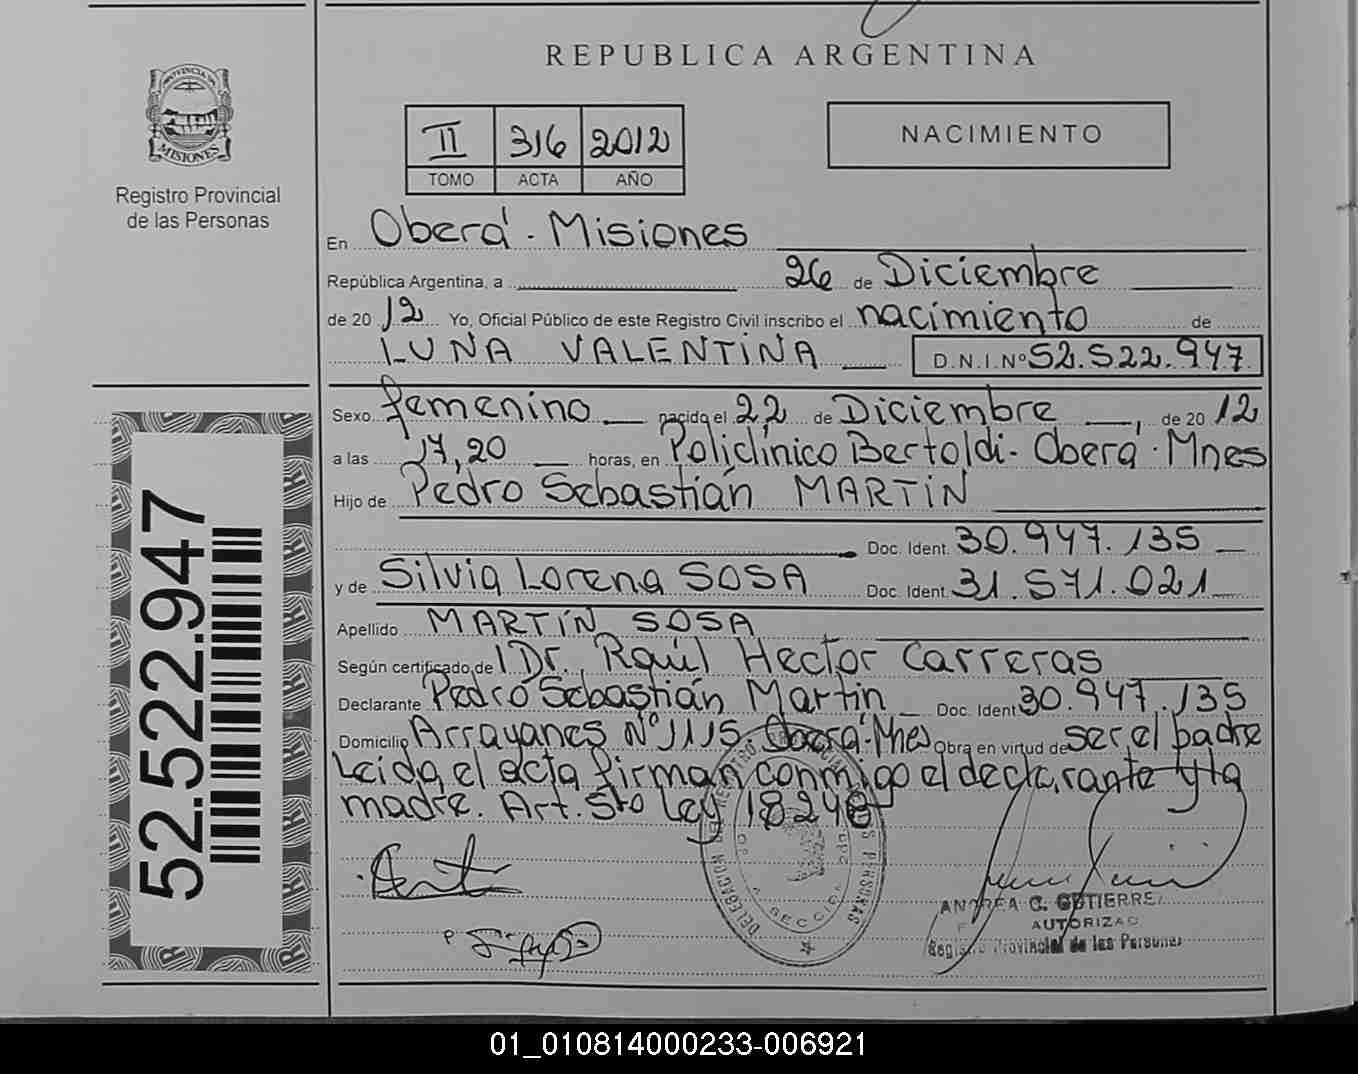 REPUBLICA ARGENTINA
PROVINCIA DE
MISIONES
Registro Provincial
de las Personas
II 316 2012
TOMO ACTA AÑO
NACIMIENTO
En Oberá - Misiones
República Argentina, a 26 de Diciembre
de 20 12 Yo, Oficial Público de este Registro Civil inscribo el nacimiento de
LUNA VALENTINA D.N.I.Nº 52.522.947
Sexo femenino nacido el 22 de Diciembre, de 20 12
a las 17,20 horas, en Policlínico Bertoldi - Oberá - Mnes
Hijo de Pedro Sebastián MARTIN
Doc. Ident. 30.947.135
y de Silvia Lorena SOSA Doc. Ident. 31.571.021
Apellido MARTÍN SOSA
Según certificado de Dr. Raúl Hector Carreras
Declarante Pedro Sebastián Martin Doc. Ident 30.947.135
Domicilio Arrayanes Nº 1115. Oberá-Mnes Obra en virtud de ser el padre
Leida el acta firman conmigo el declarante y la
madre. Art. 5to Ley 18248
52.522.947
ANDREA C. GUTIERREZ
AUTORIZAD
Registro Provincial de las Personas
01_010814000233-006921